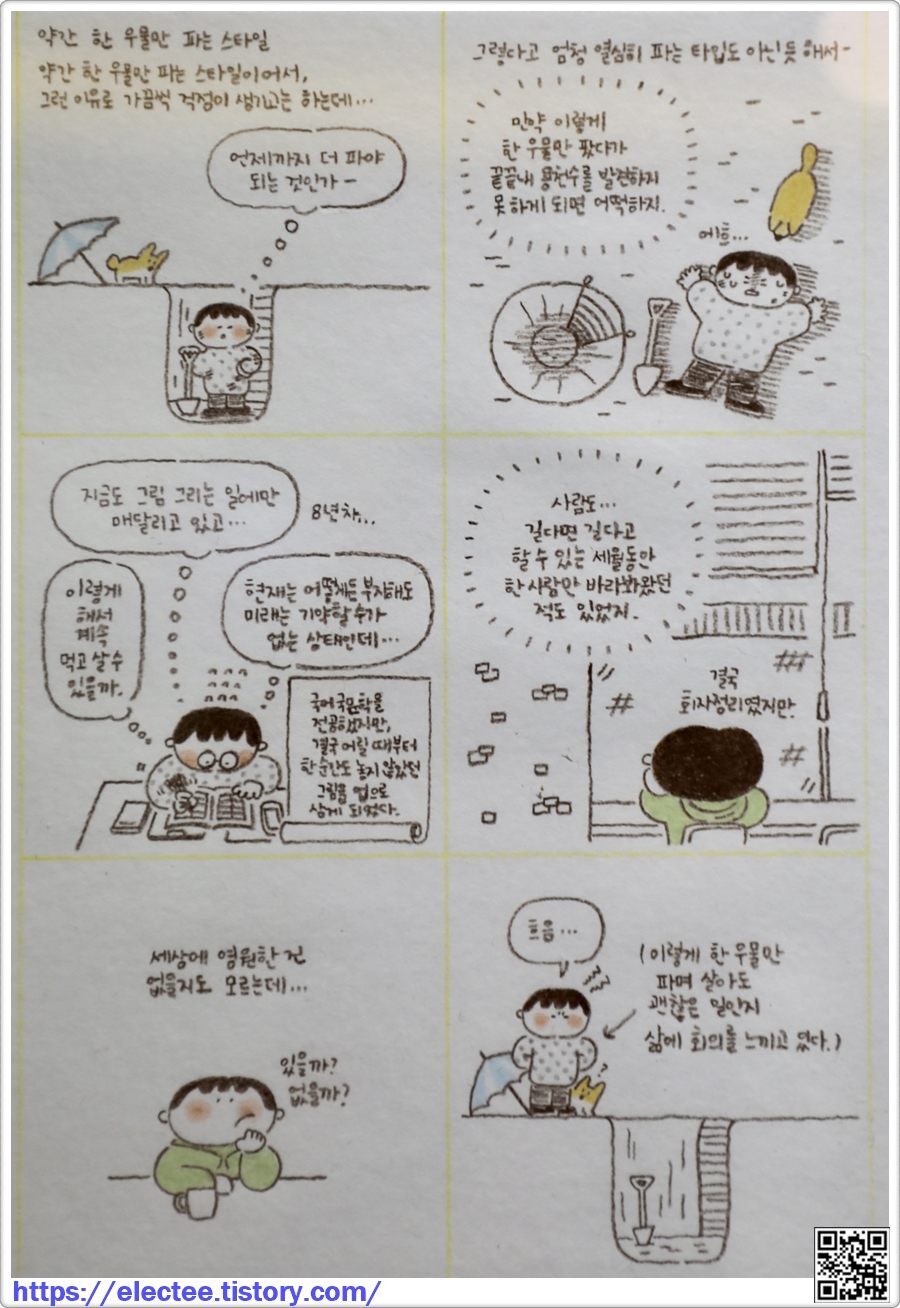 약간 한 우물만 파는 스타일
약간 한 우물만 파는 스타일이어서,
그런 이유로 가끔씩 걱정이 생기고는 하는데...
언제까지 더 파야
되는 것인가-
그렇다고 엄청 열심히 파는 타입도 아닌 듯 해서-
만약 이렇게
한 우물만 팠다가
끝끝내 용천수를 발견하지
못하게 되면 어떡하지.
에흐...
지금도 그림 그리는 일에만
매달리고 있고...
8년차...
이렇게
해서
계속
먹고 살 수
있을까.
현재는 어떻게든 부지해도
미래는 기약할 수가
없는 상태인데...
국어국문학을
전공했지만,
결국 어릴 때부터
한순간도 놓지 않았던
그림을 업으로
삼게 되었다.
사람도...
길다면 길다고
할 수 있는 세월동안
한 사람만 바라봐왔던
적도 있었지.
결국
회자정리였지만.
세상에 영원한 건
없을지도 모르는데...
있을까?
없을까?
흐음...
(이렇게 한 우물만
파며 살아도
괜찮은 일인지
삶에 회의를 느끼고 있다.)
?
https://electee.tistory.com/